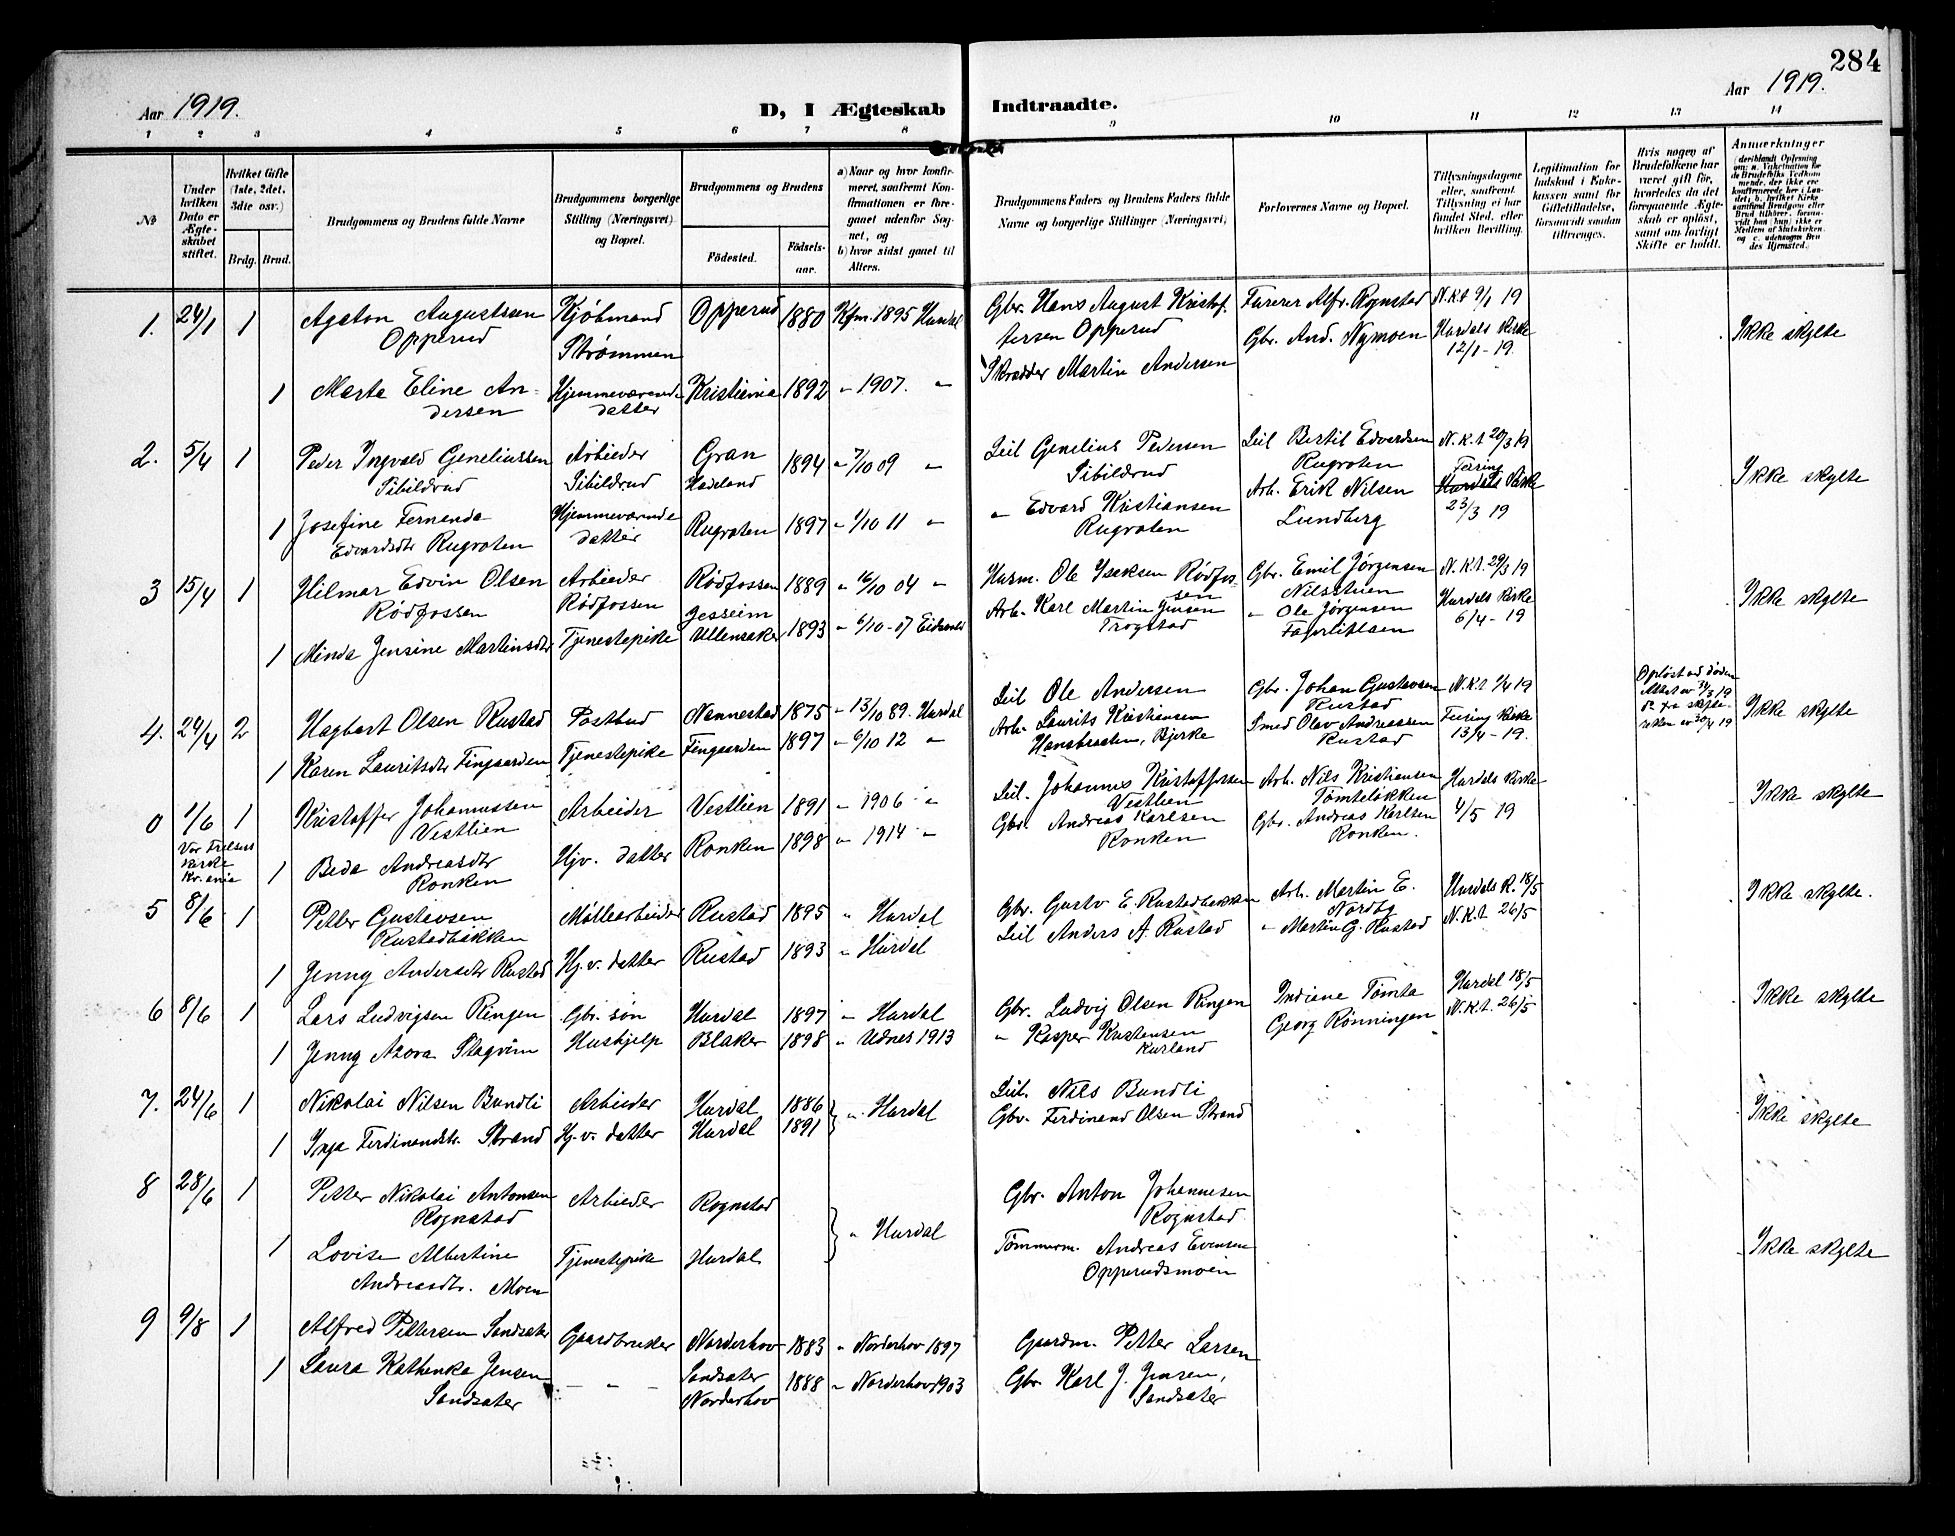 284
Aar 1919.
D, I Ægteskab Indtraadte.
Aar 1919.
1 2 3 4 5 6 7 8 9 10 11 12 13 14
№
Under hvilken Dato er Ægteskabet stiftet.
Hvilket Gifte (1ste, 2det, 3die osv.)
Brdg. Brud.
Brudgommens og Brudens fulde Navne
Brudgommens borgerlige Stilling (Næringsvei) og Bopæl.
Brudgommens og Brudens
Fødested.
Fødselsaar.
a) Naar og hvor konfirmeret, saafremt Konfirmationen er foregaaet udenfor Sognet, og
b) hvor sidst gaaet til Alters.
Brudgommens Faders og Brudens Faders fulde Navne og borgerlige Stillinger (Næringsvei).
Forlovernes Navne og Bopæl.
Tillysningsdagene eller, saafremt Tillysning ei har fundet Sted, efter hvilken Bevilling.
Legitimation for Indskud i Enkekassen samt for Giftetilladelse, forsaavidt saadan tiltrænges.
Hvis nogen af Brudefolkene har været gift før, hvorledes da det foregaaende Ægteskab er opløst, samt om lovligt Skifte er holdt.
Anmærkninger
1. 24/1 1 Agaton Augustsen Opperud Kjöbmand Strømmen Opperud 1880 Kfm. 1895 Hurdal Gbr. Hans August Kristoffersen Opperud Furerer Alfr. Rognstad N.K.t 9/1 19 Ikke skylte
1 Marta Eline Andersen Hjemmeværende datter Kristiania 1892 " 1907. " Skrædder Martin Andersen Gbr. And. Nymoen Hurdals Kirke 12/1-19.
2. 5/4 1 Peder Ingvald Geneliussen Sibildrud Arbieder Sibildrud Gran Hadeland 1894 " 7/10 09 " Leil Genelius Pedersen Sibildrud Leil Bertil Edvardsen Rugroten N.K.t 20/3 19 Ikke skylte
1 Josefine Fernanda Edvardsdtr Rugroten Hjemmeværende datter Rugroten 1897 " 1/10 11 " " Edvard Kristiansen Rugroten Arb. Erik Nilsen Lundberg Feiring Hurdals Kirke 23/3 19
3 15/4 1 Hilmar Edvin Olsen Rödfossen Arbieder Rödfossen Rödfossen 1889 " 16/10 04 " Husm. Ole Iseksen Rödfossen Gbr. Emil Jörgensen Nilsstuen N.K.t. 29/3 19 Ikke skylte
1 Minda Jensine Martinsdtr Tjenestepike Jesseim Ullensaker 1893 " 6/10-07 Eidsvold Arb. Karl Martin Jensen Trogstad " Ole Jörgensen Fagerlitlaen Hurdals Kirke 6/4-19
4. 24/4 2 Hagbart Olsen Rustad Postbud Nannestad 1875 " 13/10 89. Hurdal Leil Ole Andersen Gbr. Johan Gustavsen Rustad N.K.t 9/4 19 Opløst ved døden Ikke skylte
1 Karen Lauritsdtr Fingarden Tjenestepike Fingaarden 1897 " 6/10 12 " Arb. Laurits Kristiansen Hansbraaten, Bjerke Smed Olav Andreassen Rustad Feiring Kirke 13/4-19.
0 1/6 1 Kristoffer Johannessen Vestlien Arbieder Vestlien 1891 " 1906 " Leil. Johannes Kristoffersen Vestlien Arb. Nils Kristiansen Tömteløkken Hurdals Kirke 4/5 19 Ikke skylte
Vor Frelsers Kirke Kr.ania 1 Beda Andreasdtr Ronken Hjv. datter Ronken 1898 " 1914 " Gbr. Andreas Karlsen Ronken Gbr. Andreas Karlsen Ronken.
5 8/6 1 Petter Gustavsen Rustadbakken Möllearbieder Rustad 1895 " Hurdal Gbr. Gustv E. Rustadbakken Arb. Martin E. Nordby Hurdals K. 18/5 Ikke skylte.
1 Jenny Andersdtr Rustad Hj.v. datter Rustad 1893 " Hurdal Leil Anders A. Rustad " Martin G. Rustad N.K.t. 26/5
6 8/6 1 Lars Ludvigsen Ringen Gbr. søn Hurdal 1897 " Hurdal Gbr. Ludvig Olsen Ringen Indiane Tömta Hurdal 18/5 Ikke skylte
1 Jenny Azora Slagvim Hushjelp Blaker 1898 " Udnes 1913 " Kasper Kristensen Kurland Georg Rönningen N.K.t. 26/5
7. 24/6 1 Nikolai Nilsen Bundli Arbieder Hurdal 1886 " Hurdal Leil. Nils Bundli Ikke skylte
1 Inga Ferdinandsdtr. Strand Hj.v. datter Hurdal 1891 Gbr. Ferdinand Olsen Strand
8 28/6 1 Petter Nikolai Antonsen Rognstad Arbieder Rognstad " Hurdal Gbr. Anton Johannesen Rognstad Ikke skylte
1 Lovise Albertine Andreasdtr. Moen Tjenestepike Hurdal Tömmerm. Andreas Evensen Opperudsmoen
9 9/8 1 Alfred Pettersen Sandsæter Gaardbruker Norderhov 1883 " Norderhov 1897 Gaardm. Petter Larsen
1 Laura Kathenka Jensen Sandsæter - " - Sandsæter Norderhov 1888 " Norderhov 1903 Gbr. Karl J. Jensen, Sandsæter